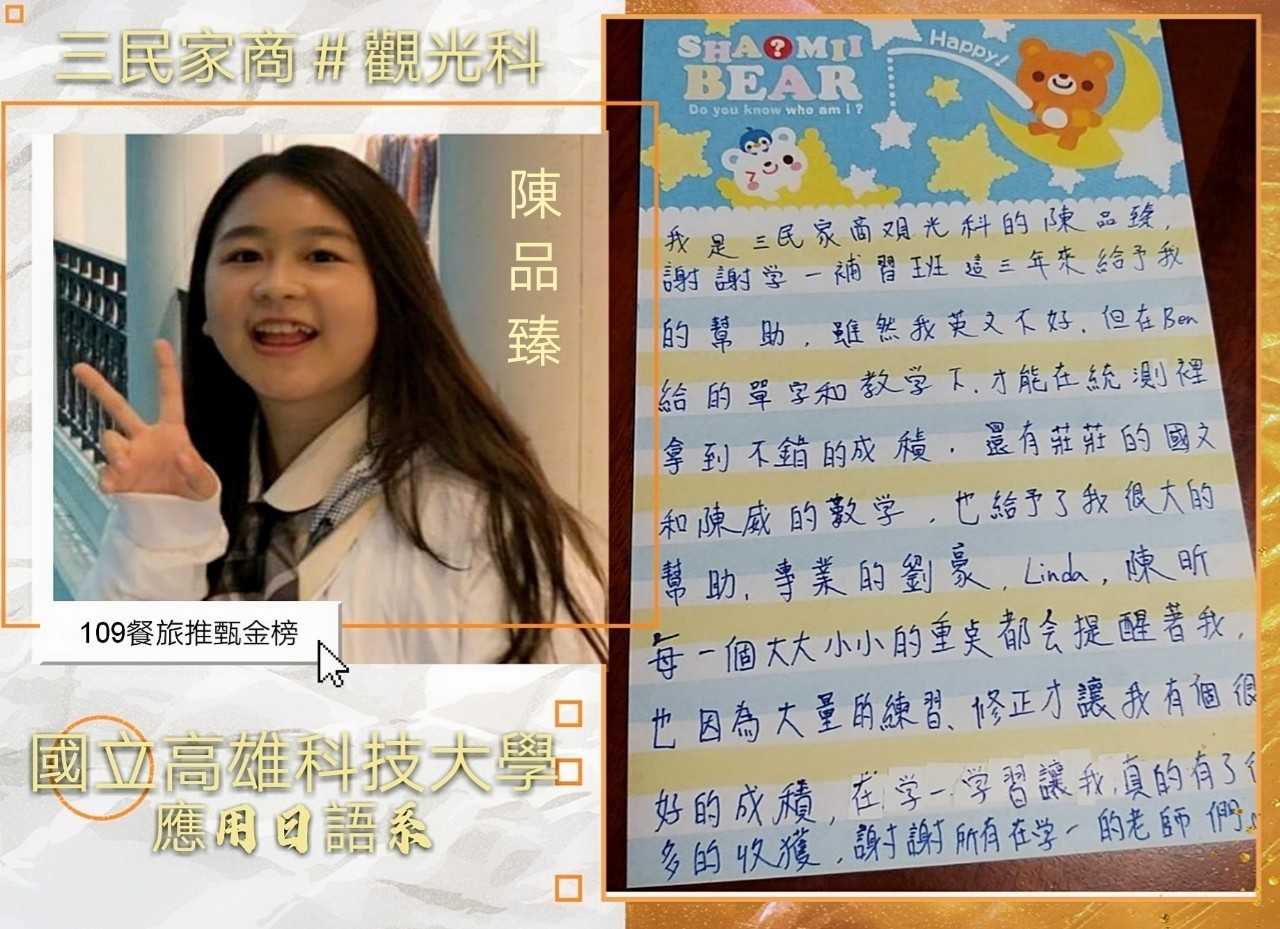 三民家商#觀光科
陳品臻
109餐旅推甄金榜
國立高雄科技大學
應用日語系
SHAOMII
BEAR
Do you know who am i?
Happy!
我是三民家商观光科的陳品臻,
謝謝学一補習班這三年來給予我
的幫助,雖然我英文不好,但在Ben
給的單字和教学下,才能在統測裡
拿到不錯的成積,還有莊莊的國文
和陳威的數学,也給予了我很大的
幫助,專業的劉豪,Linda,陳昕
每一個大大小小的重点都会提醒著我,
也因為大量的練習、修正才讓我有個很
好的成積,在学一学習讓我真的有了很
多的收獲,謝謝所有在学一的老師們